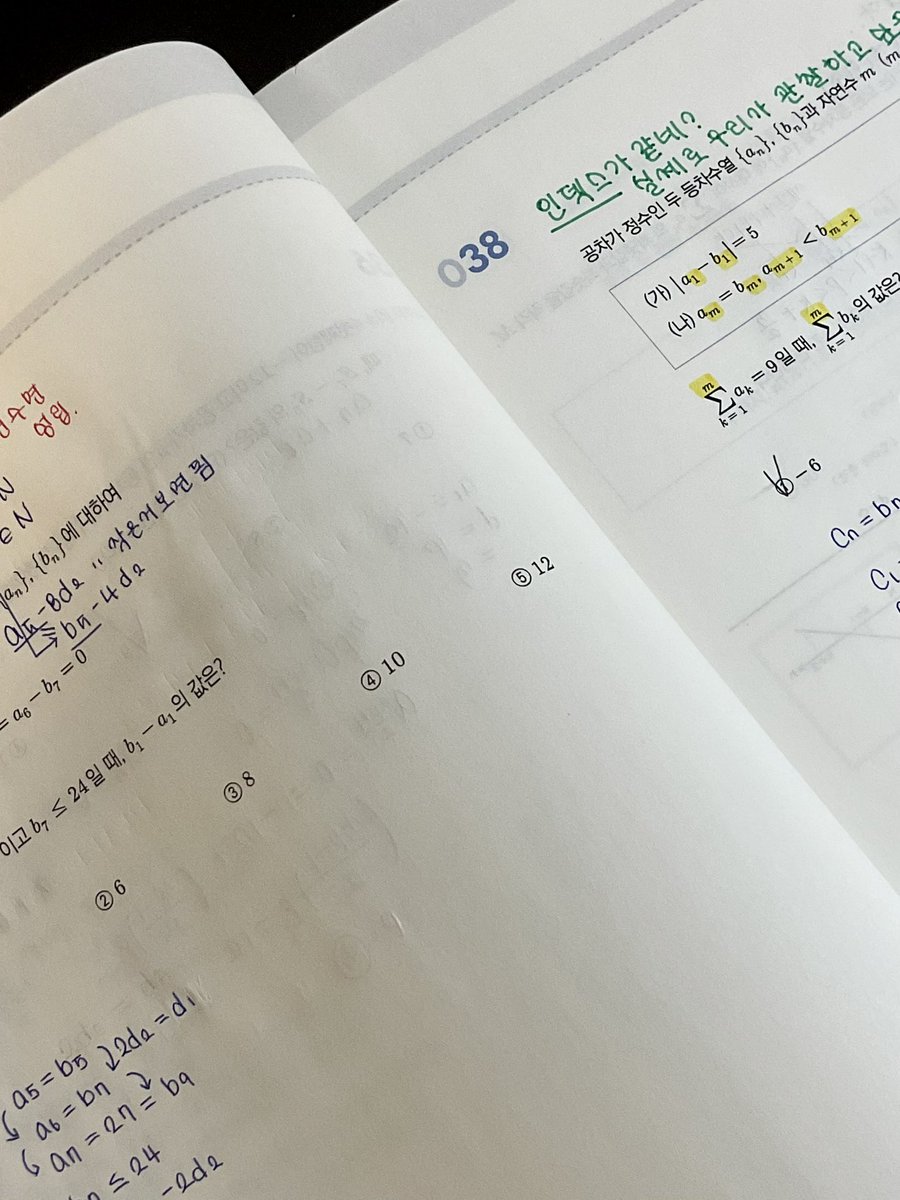 성립.
N
∈ N
{aₙ}, {bₙ}에 대하여
-8d₂ " 작은거 보면 됨
b₇ - 4d₂
= a₆ - b₇ = 0
이고 b₇ ≤ 24일 때, b₁ - a₁의 값은?
② 6
③ 8
④ 10
⑤ 12
a₅ = b₅
2d₂ = d₁
a₆ = b₇
a₇ = 27 = b₉
≤ 24
-2d₂
인덱스가 같네?
실제로 우리가 관찰하고
038
공차가 정수인 두 등차수열 {aₙ}, {bₙ}과 자연수 m (m
(가) |a₁ - b₁| = 5
(나) aₘ = bₘ, aₘ₊₁ < bₘ₊₁
∑ₖ₌₁ᵐ aₖ = 9일 때, ∑ₖ₌₁ᵐ bₖ의 값은?
① -6
Cₙ = bₙ
C₁